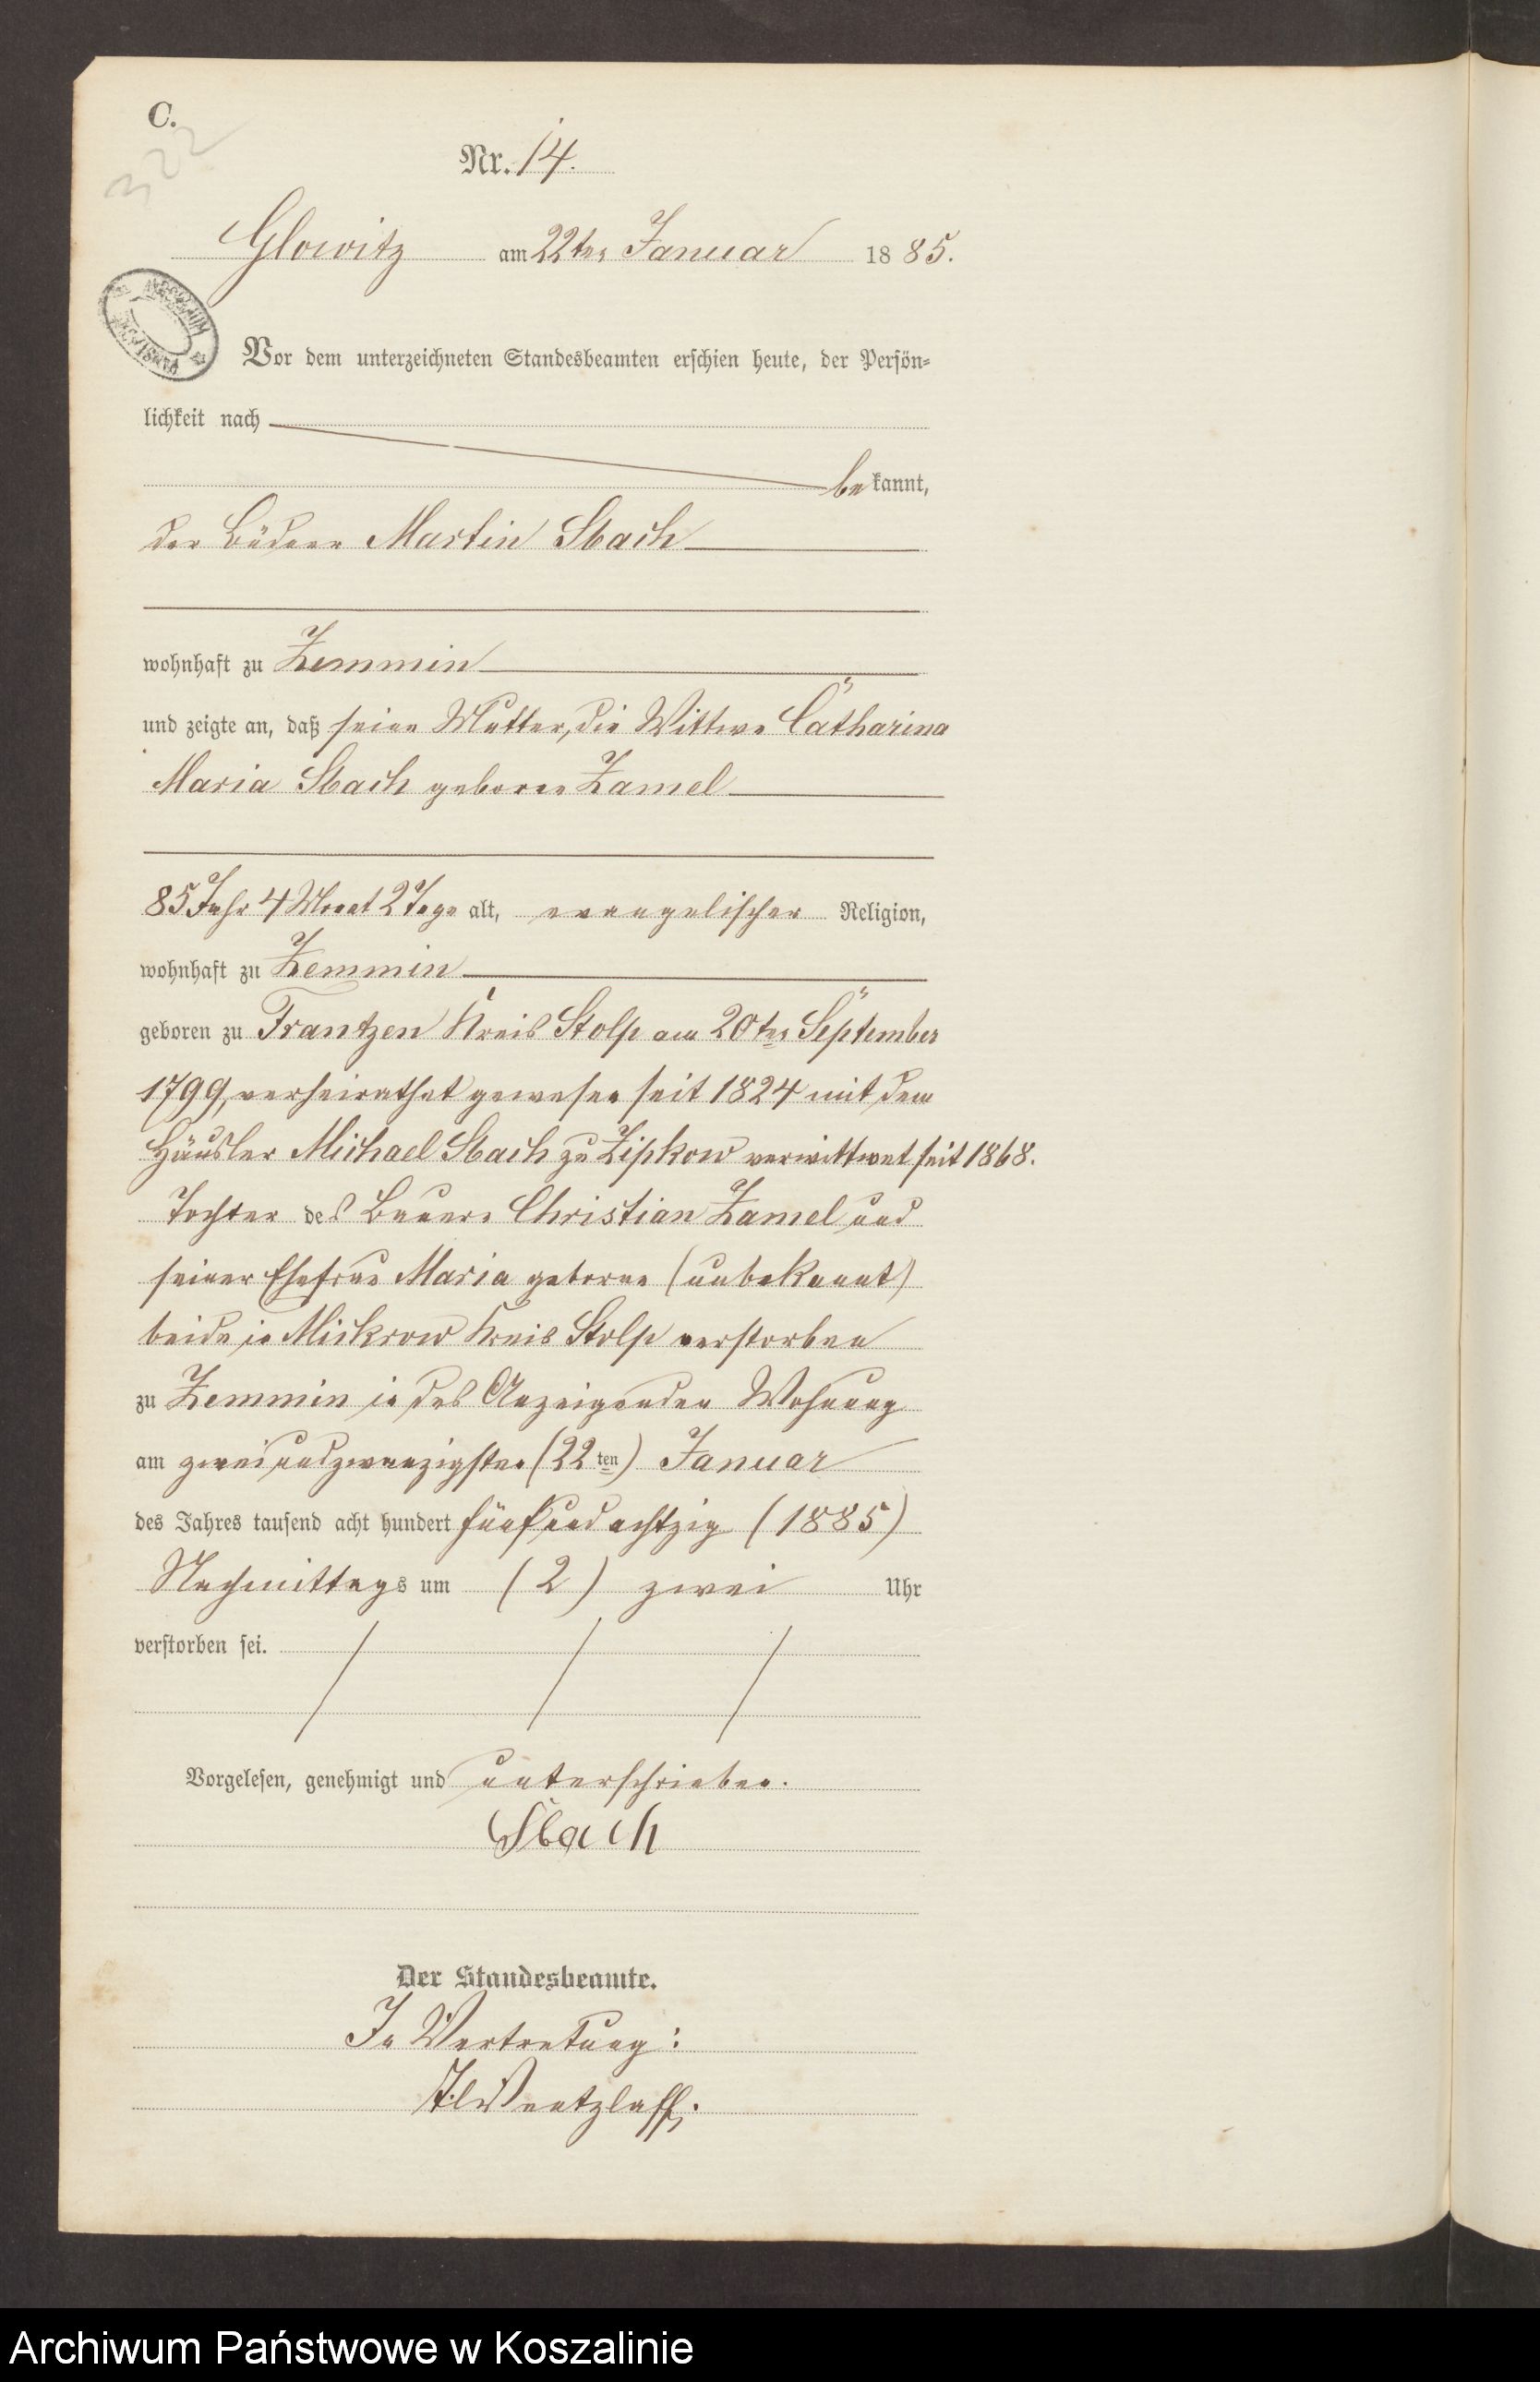 C.
322
Nr. 14.
Glowitz am 22ten Januar 1885.
Vor dem unterzeichneten Standesbeamten erschien heute, der Persön-
lichkeit nach
bekannt,
der Büdner Martin Sbach
wohnhaft zu Zemmin
und zeigte an, daß seine Mutter, die Wittwe Catharina
Maria Sbach geborne Zamel
85 Jahr 4 Monat 2 Tage alt, evangelischer Religion,
wohnhaft zu Zemmin
geboren zu Frantzen Kreis Stolp am 20ten September
1799, verheirathet gewesen seit 1824 mit dem
Häusler Michael Sbach zu Zipkow verwittwet seit 1868.
Tochter des Bauern Christian Zamel und
seiner Ehefrau Maria geborne (unbekannt)
beide in Mickrow Kreis Stolp verstorben
zu Zemmin in des Anzeigenden Wohnung
am zweiundzwanzigsten (22ten) Januar
des Jahres tausend acht hundert fünfundachtzig (1885)
Nachmittags um (2) zwei Uhr
verstorben sei.
Vorgelesen, genehmigt und unterschrieben.
Sbach
Der Standesbeamte.
In Vertretung:
Wentzlaff.
Archiwum Państwowe w Koszalinie